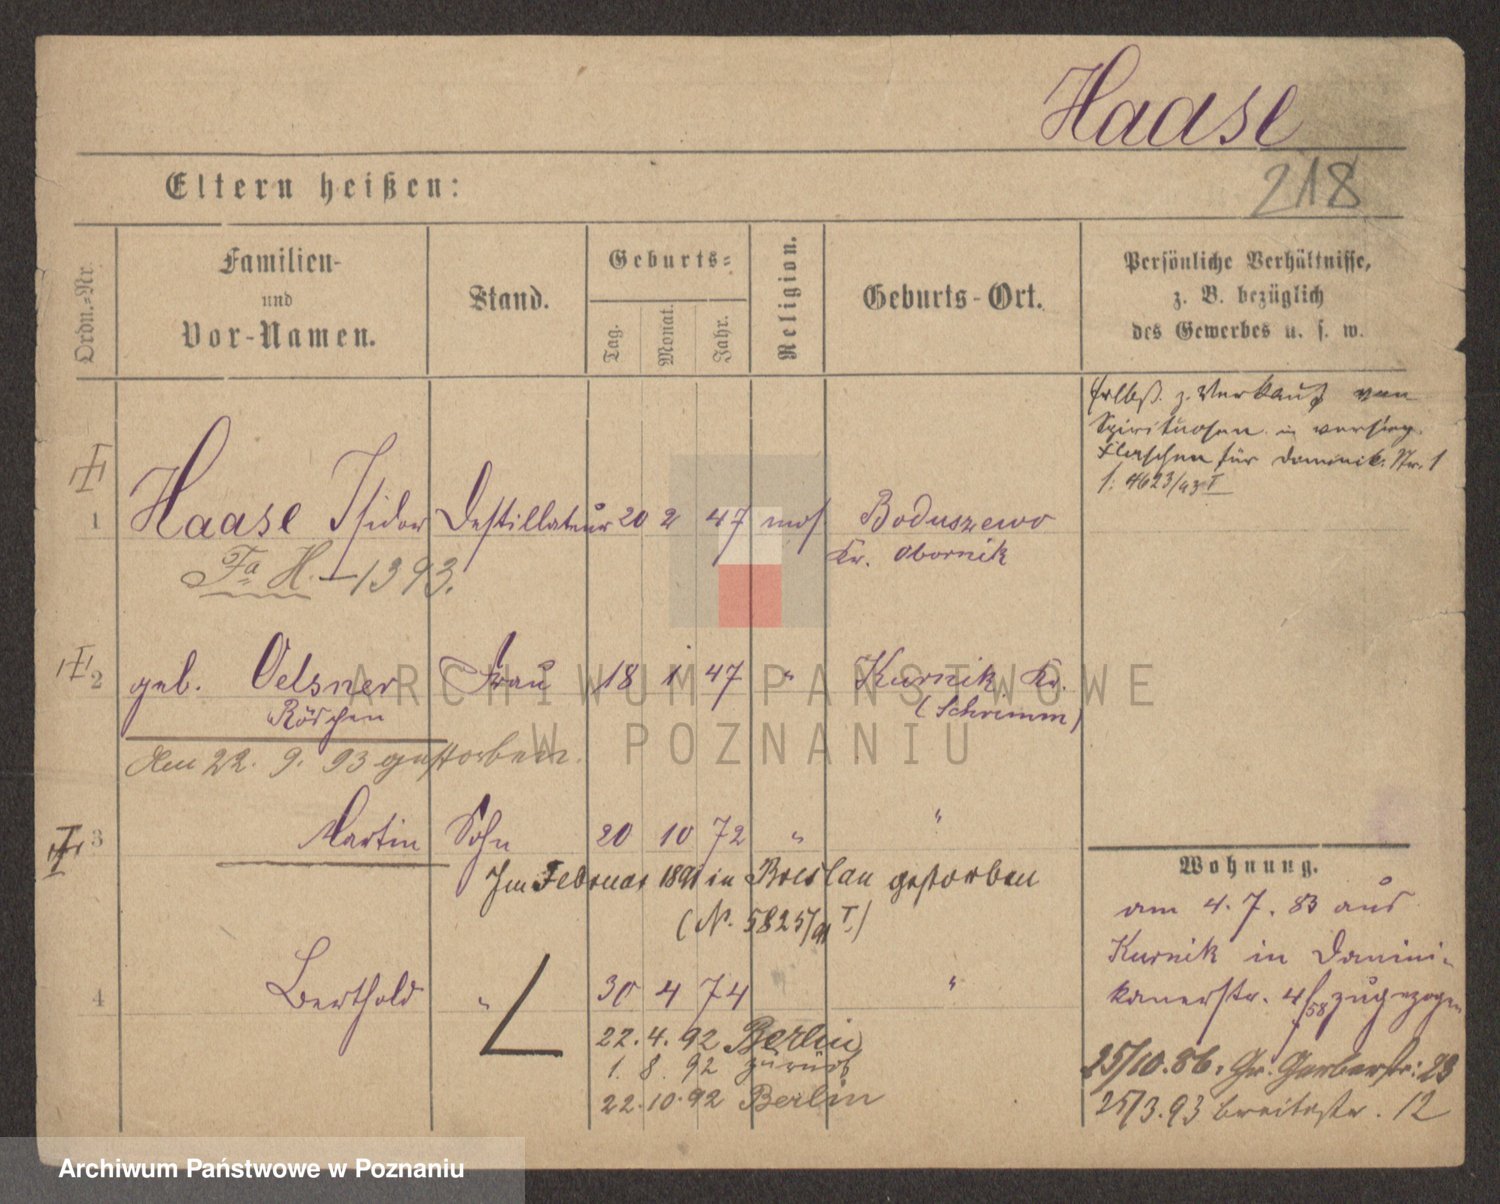 Haase
218
Eltern heißen:
Ordn.-Nr.
Familien-
und
Vor-Namen.
Stand.
Geburts-
Tag.
Monat.
Jahr.
Religion.
Geburts-Ort.
Persönliche Verhältnisse,
z. B. bezüglich
des Gewerbes u. s. w.
z. Verkauf von
Spirituosen in versieg.
Flaschen für Dominik. Str. 1
1 Haase Isidor Destillateur 20 2 47 mos Boduszewo
Kr. Obornik
Fa H. - 1393.
2 geb. Oelsner Frau 18 1 47 " Kurnik Kr.
Röschen (Schrimm)
den 22. 9. 93 gestorben.
3 Martin Sohn 20 10 72 " "
Im Februar 1891 in Breslau gestorben
(N. 5825/91 I)
4 Berthold " 30 4 74 "
22. 4. 92 Berlin
1. 8. 92 zurück
22. 10. 92 Berlin
Wohnung.
am 4. 7. 83 aus
Kurnik in Domini-
kanerstr. zugezogen
25/10. 86. Gr. Gerberstr: 23
25/3. 93 Breitestr. 12
ARCHIWUM PAŃSTWOWE
W POZNANIU
Archiwum Państwowe w Poznaniu